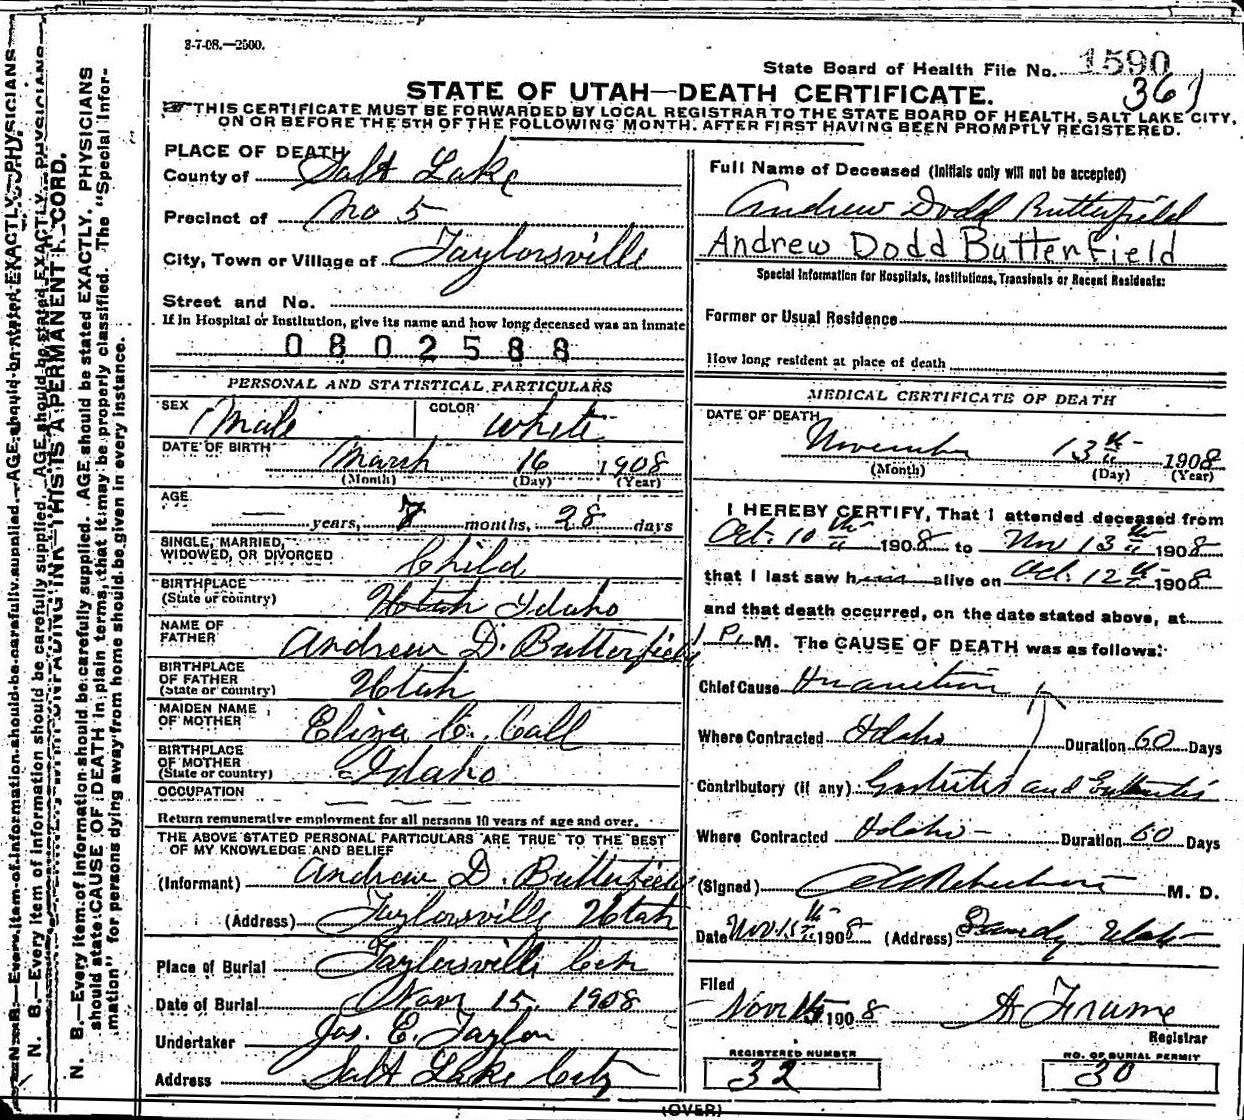 8-7-08.—2500.
State Board of Health File No. 1590
361
STATE OF UTAH—DEATH CERTIFICATE.
THIS CERTIFICATE MUST BE FORWARDED BY LOCAL REGISTRAR TO THE STATE BOARD OF HEALTH, SALT LAKE CITY,
ON OR BEFORE THE 5TH OF THE FOLLOWING MONTH. AFTER FIRST HAVING BEEN PROMPTLY REGISTERED.
PLACE OF DEATH
County of Salt Lake
Precinct of No 5
City, Town or Village of Taylorsville
Street and No.
If in Hospital or Institution, give its name and how long deceased was an inmate
0802588
PERSONAL AND STATISTICAL PARTICULARS
SEX Male COLOR White
DATE OF BIRTH March 16 1908
(Month) (Day) (Year)
AGE
— years, 7 months, 28 days
SINGLE, MARRIED,
WIDOWED, OR DIVORCED Child
BIRTHPLACE
(State or country) Utah Idaho
NAME OF
FATHER Andrew D. Butterfield
BIRTHPLACE
OF FATHER
(State or country) Utah
MAIDEN NAME
OF MOTHER Eliza C. Call
BIRTHPLACE
OF MOTHER
(State or country) Idaho
OCCUPATION — — —
Return remunerative employment for all persons 10 years of age and over.
THE ABOVE STATED PERSONAL PARTICULARS ARE TRUE TO THE BEST
OF MY KNOWLEDGE AND BELIEF
(Informant) Andrew D. Butterfield
(Address) Taylorsville Utah
Place of Burial Taylorsville Cem
Date of Burial Nov 15 1908
Undertaker Jos. E. Taylor
Address Salt Lake City
Full Name of Deceased (Initials only will not be accepted)
Andrew Dodd Butterfield
Andrew Dodd Butterfield
Special Information for Hospitals, Institutions, Transients or Recent Residents:
Former or Usual Residence
How long resident at place of death
MEDICAL CERTIFICATE OF DEATH
DATE OF DEATH
November 13th 1908
(Month) (Day) (Year)
I HEREBY CERTIFY, That I attended deceased from
Oct. 10th 1908 to Nov 13th 1908
that I last saw him alive on Oct. 12th 1908
and that death occurred, on the date stated above, at
1 P. M. The CAUSE OF DEATH was as follows:
Chief Cause Inanition
Where Contracted Idaho Duration 60 Days
Contributory (if any) Gastritis and Enteritis
Where Contracted Idaho Duration 60 Days
(Signed) M. D.
Date Nov. 15th 1908 (Address) Sandy Utah
Filed
Nov 15 1908 A Frame
Registrar
REGISTERED NUMBER
32
NO. OF BURIAL PERMIT
30
(OVER)
N. B.—Every item of information should be carefully supplied. AGE should be stated EXACTLY. PHYSICIANS
N. B.—Every item of information should be carefully supplied. AGE should be stated EXACTLY. PHYSICIANS
THIS IS A PERMANENT RECORD.
N. B.—Every item of information should be carefully supplied. AGE should be stated EXACTLY. PHYSICIANS
should state CAUSE OF DEATH in plain terms, that it may be properly classified. The "Special Infor-
mation" for persons dying away from home should be given in every instance.